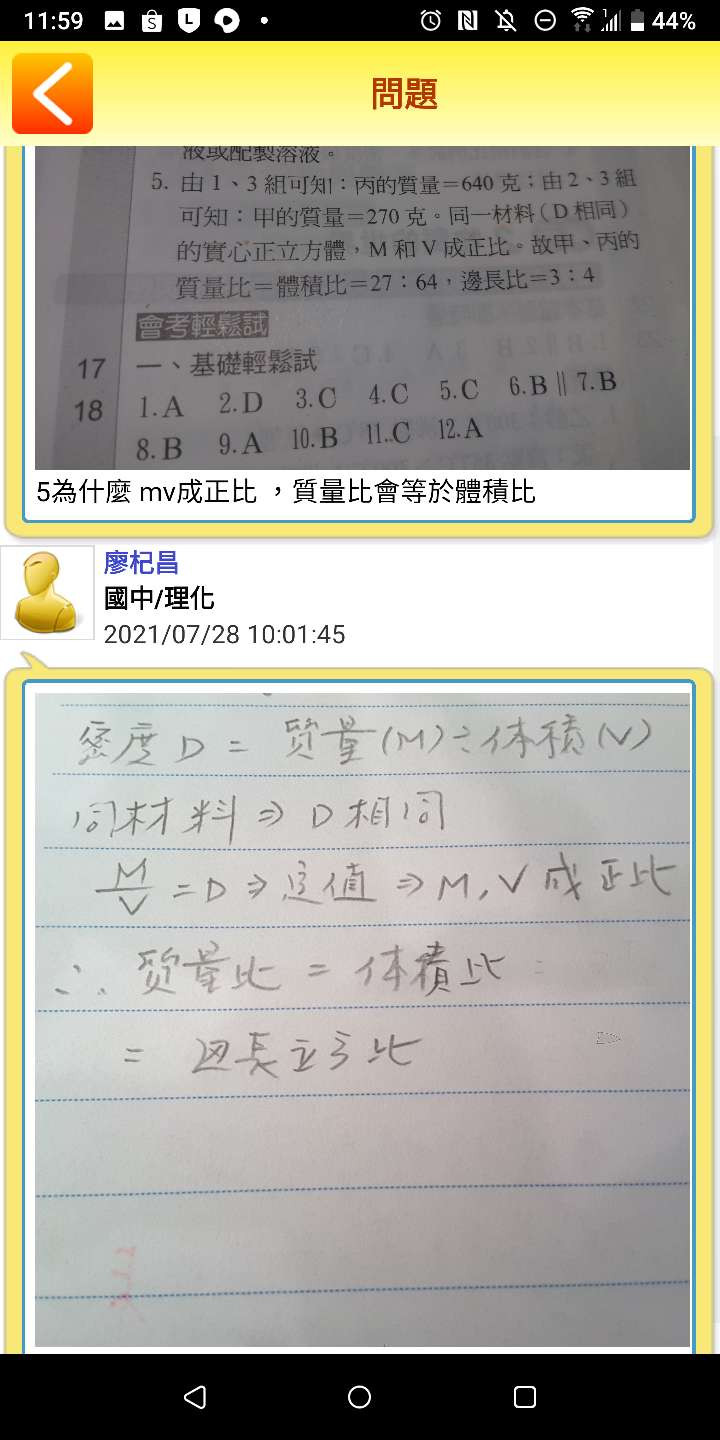 11:59
44%
問題
液或配製溶液。
5. 由1、3組可知：丙的質量=640克；由2、3組
可知：甲的質量=270克。同一材料（D相同）
的實心正立方體，M和V成正比。故甲、丙的
質量比=體積比=27：64，邊長比=3：4
會考輕鬆試
17 一、基礎輕鬆試
18 1.A 2.D 3.C 4.C 5.C 6.B || 7.B
8.B 9.A 10.B 11.C 12.A
5為什麼 mv成正比 ，質量比會等於體積比
廖杞昌
國中/理化
2021/07/28 10:01:45
密度 D = 質量(M)÷体積(V)
同材料 ⇒ D相同
M/V = D ⇒ 定值 ⇒ M, V 成正比
∴ 質量比 = 体積比
= 边長立方比